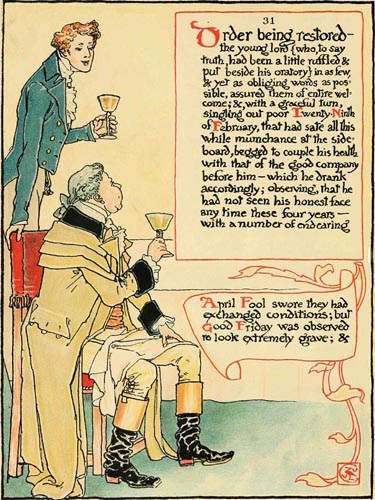 31
Order being restored—
the young lord (who, to say
truth, had been a little ruffled &
put beside his oratory) in as few,
& yet as obliging words as pos-
sible, assured them of entire wel-
come; &, with a graceful turn,
singling out poor Twenty-Ninth
of February, that had sate all this
while mumchance at the side-
board, begged to couple his health
with that of the good company
before him — which he drank
accordingly; observing, that he
had not seen his honest face
any time these four years —
with a number of endearing
April Fool swore they had
exchanged conditions; but
Good Friday was observed
to look extremely grave; &